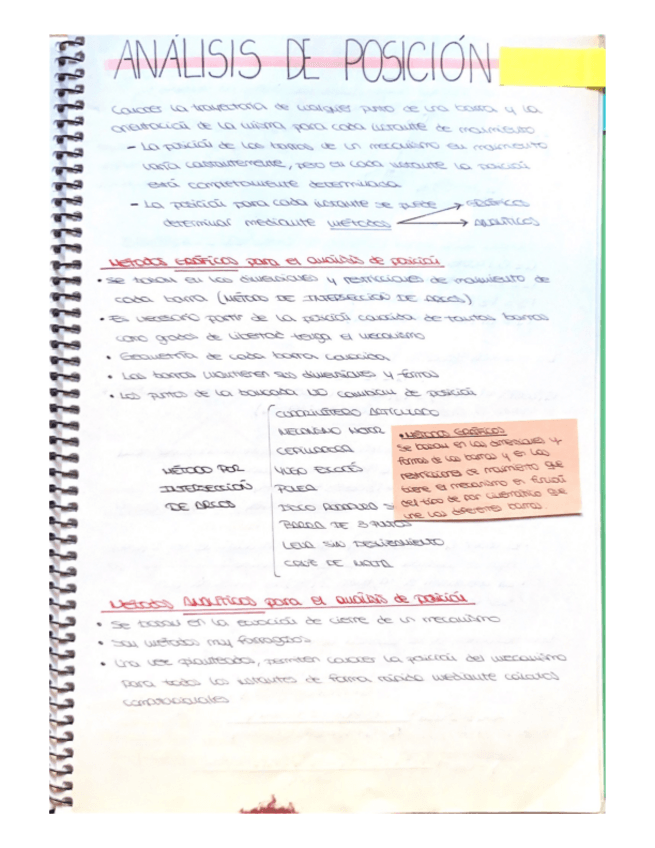 ANÁLISIS DE POSICIÓN
Conocer la trayectoria de cualquier punto de una barra y la
orientación de la misma para cada instante de movimiento
- La posición de las barras de un mecanismo en movimiento
varía constantemente, pero en cada instante la posición
está completamente determinada
- La posición para cada instante se puede
determinar mediante métodos
GRÁFICOS
ANALÍTICOS
MÉTODOS GRÁFICOS para el análisis de posición
• Se basan en las dimensiones y restricciones de movimiento de
cada barra (MÉTODO DE INTERSECCIÓN DE ARCOS)
• Es necesario partir de la posición conocida de tantas barras
como grados de libertad tenga el mecanismo
• Geometría de cada barra conocida
• Las barras mantienen sus dimensiones y formas
• Los puntos de la bancada NO cambian de posición
MÉTODO POR
INTERSECCIÓN
DE ARCOS
CUADRILÁTERO ARTICULADO
MECANISMO MOTOR
CEPILLADORA
YUGO ESCOCÉS
POLEA
DISCO RODADURA S
BARRA DE 3 PUNTOS
LEVA SIN DESLIZAMIENTO
• MÉTODOS GRÁFICOS
Se basan en las dimensiones y
formas de las barras y en las
restricciones de movimiento que
tiene el mecanismo en función
del tipo de par cinemático que
une las diferentes barras.
MÉTODOS ANALÍTICOS para el análisis de posición
• Se basan en la ecuación de cierre de un mecanismo
• Son métodos muy farragosos
• Una vez planteados, permiten conocer la posición del mecanismo
para todos los instantes de forma rápida mediante cálculos
computacionales